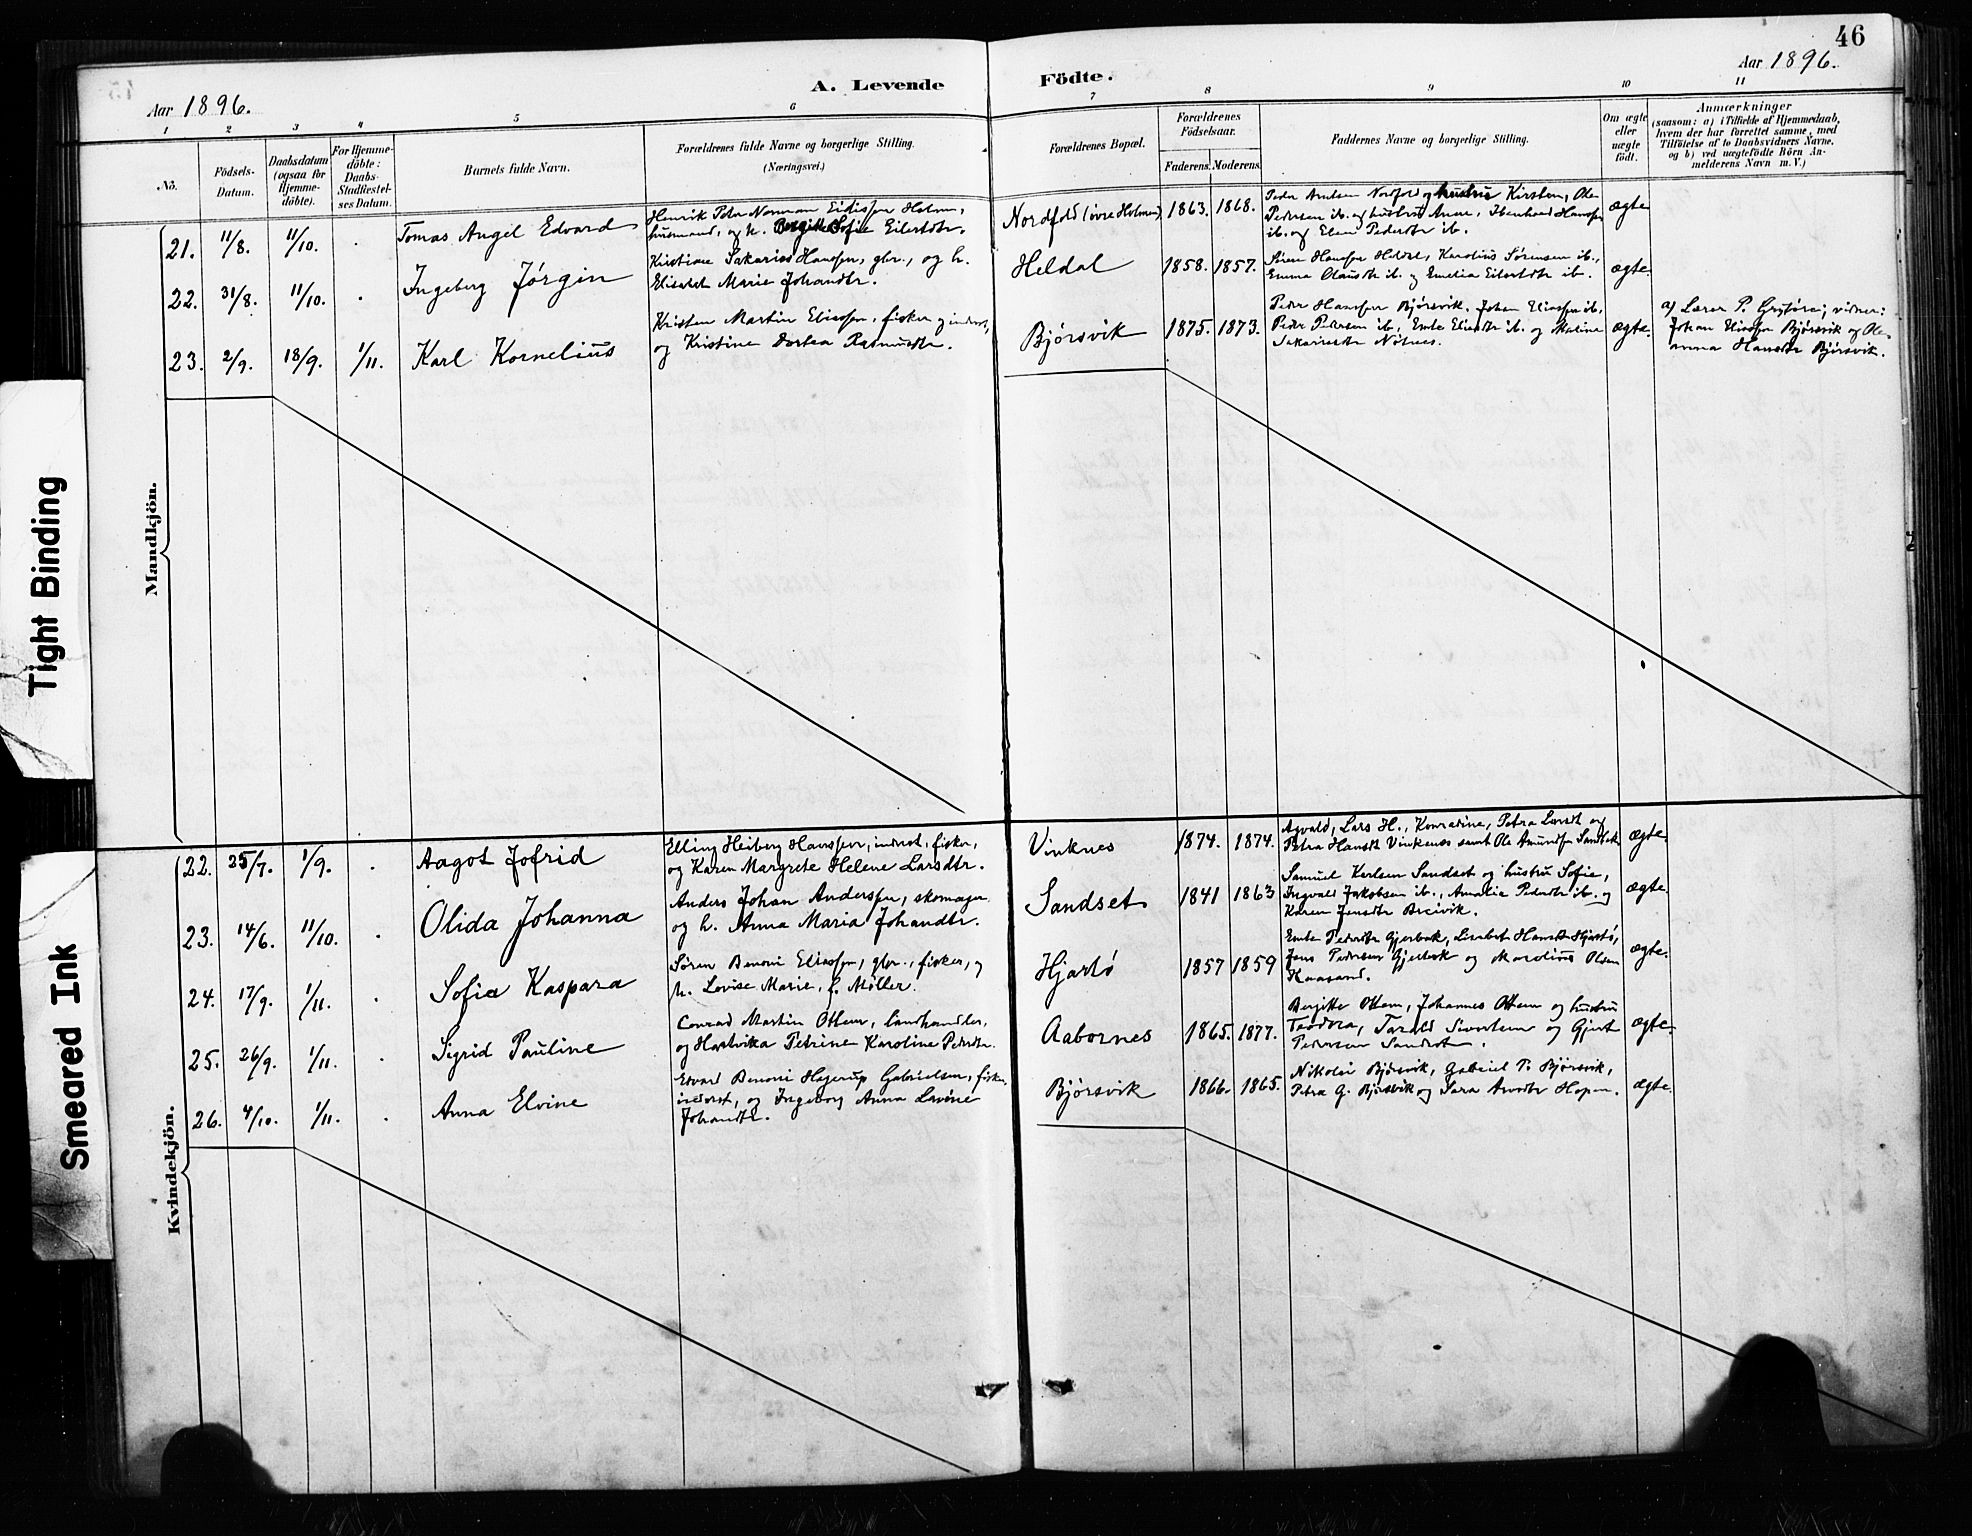 46
Aar 1896.
A. Levende
Födte.
Aar 1896.
1 2 3 4 5 6 7 8 9 10 11
Nö.
Födsels-
Datum.
Daabsdatum
(ogsaa for
Hjemme-
döbte).
For Hjemme-
döbte:
Daabs-
Stadfæstel-
ses Datum.
Barnets fulde Navn.
Forældrenes fulde Navne og borgerlige Stilling.
(Næringsvei.)
Forældrenes Bopæl.
Forældrenes
Födselsaar.
Faderens. Moderens.
Faddernes Navne og borgerlige Stilling.
Om ægte
eller
uægte
födt.
Anmærkninger
(saasom: a) i Tilfælde af Hjemmedaab,
hvem der har forrettet samme, med
Tilföielse af to Daabsvidners Navne.
og b) ved uægtefödte Börn An-
melderens Navn m. V.)
Mandkjön.
21. 11/8. 11/10. . Tomas Angel Edvard
Henrik Peder Norman Eidissen Holmen,
husmand, og h. Bergitte Sofie Eilertdtr.
Nordfold (övre Holmen) 1863. 1868.
Peder Amdsen Nordfold og hustru Kirsten, Ole
Pedersen ib. og hustru Anne, Ibenhard Hanssen
ib. og Elen Pedersdtr ib.
ægte
22. 31/8. 11/10. . Ingeberg Jörgin
Kristian Sakarias Hanssen, gbr., og h.
Elisabet Marie Johandtr.
Heldal 1858. 1857.
Sören Hanssen Heldal, Karolius Sörensen ib.,
Emma Olausdtr ib. og Emelia Eilertdtr ib.
ægte.
23. 2/9. 18/9. 1/11. Karl Kornelius
Kristen Martin Eliassen, fisker og inderst,
og Kristine Dortea Rasmusdtr.
Bjórsvik 1875. 1873.
Peder Hanssen Bjórsvik, Johan Eliassen ib.,
Peder Pedersen ib., Emte Eliasdtr ib. og Maline
Sakariasdtr Nötnes.
ægte.
a) Lærer P. Grytöre; vidner:
Johan Eliassen Bjórsvik og Ole-
anna Hansdtr Bjórsvik.
Kvindekjön.
22. 25/7. 1/9. . Aagot Jofrid
Elling Heiberg Hanssen, inderst, fisker,
og Karen Margrete Helene Larsdtr.
Vinknes 1874. 1874.
Agvald, Lars H., Konradine, Petra Larsdt og
Petra Hansdt Vinkenes samt Ole Amundsen Sandbak
ægte.
23. 14/6. 11/10. . Olida Johanna
Anders Johan Anderssen, skomager
og h. Anna Maria Johandtr.
Sandset 1841 1863
Samuel Karlsen Sandset og hustru Sofie,
Ingvald Jakobsen ib., Amalie Pedersdtr ib. og
Karen Jensdtr Breivik.
ægte.
24. 17/9. 1/11. . Sofie Kaspara
Sören Benoni Eliassen, gbr., fisker, og
h. Lovise Marie, f. Möller.
Hjartö 1857 1859
Emte Pedersdtr Gjerbak, Lisabet Hansdt Hjartö,
Jens Pedersen Gjerbak og Karolius Olsen
Haasand.
ægte.
25. 26/9. 1/11. . Sigrid Pauline
Conrad Martin Ottem, landhandler,
og Hartvikka Petrine Karoline Pedersdtr.
Aabornes 1865. 1877.
Bergitte Ottem, Johannes Ottem og hustru
Teodora, Tarald Sivertsen og Gjert
Pedersen Sandset.
ægte.
26. 4/10. 1/11. . Anna Elvine
Edvard Benoni Hagerup Gabrielsen, fisker,
inderst, og Ingeborg Anna Lavine
Johandtr.
Bjórsvik 1866. 1865.
Nikolai Bjórsvik, Gabriel P. Bjórsvik,
Petra G. Bjórsvik og Sara Arndtr Hopen.
ægte.
Tight Binding
Smeared Ink